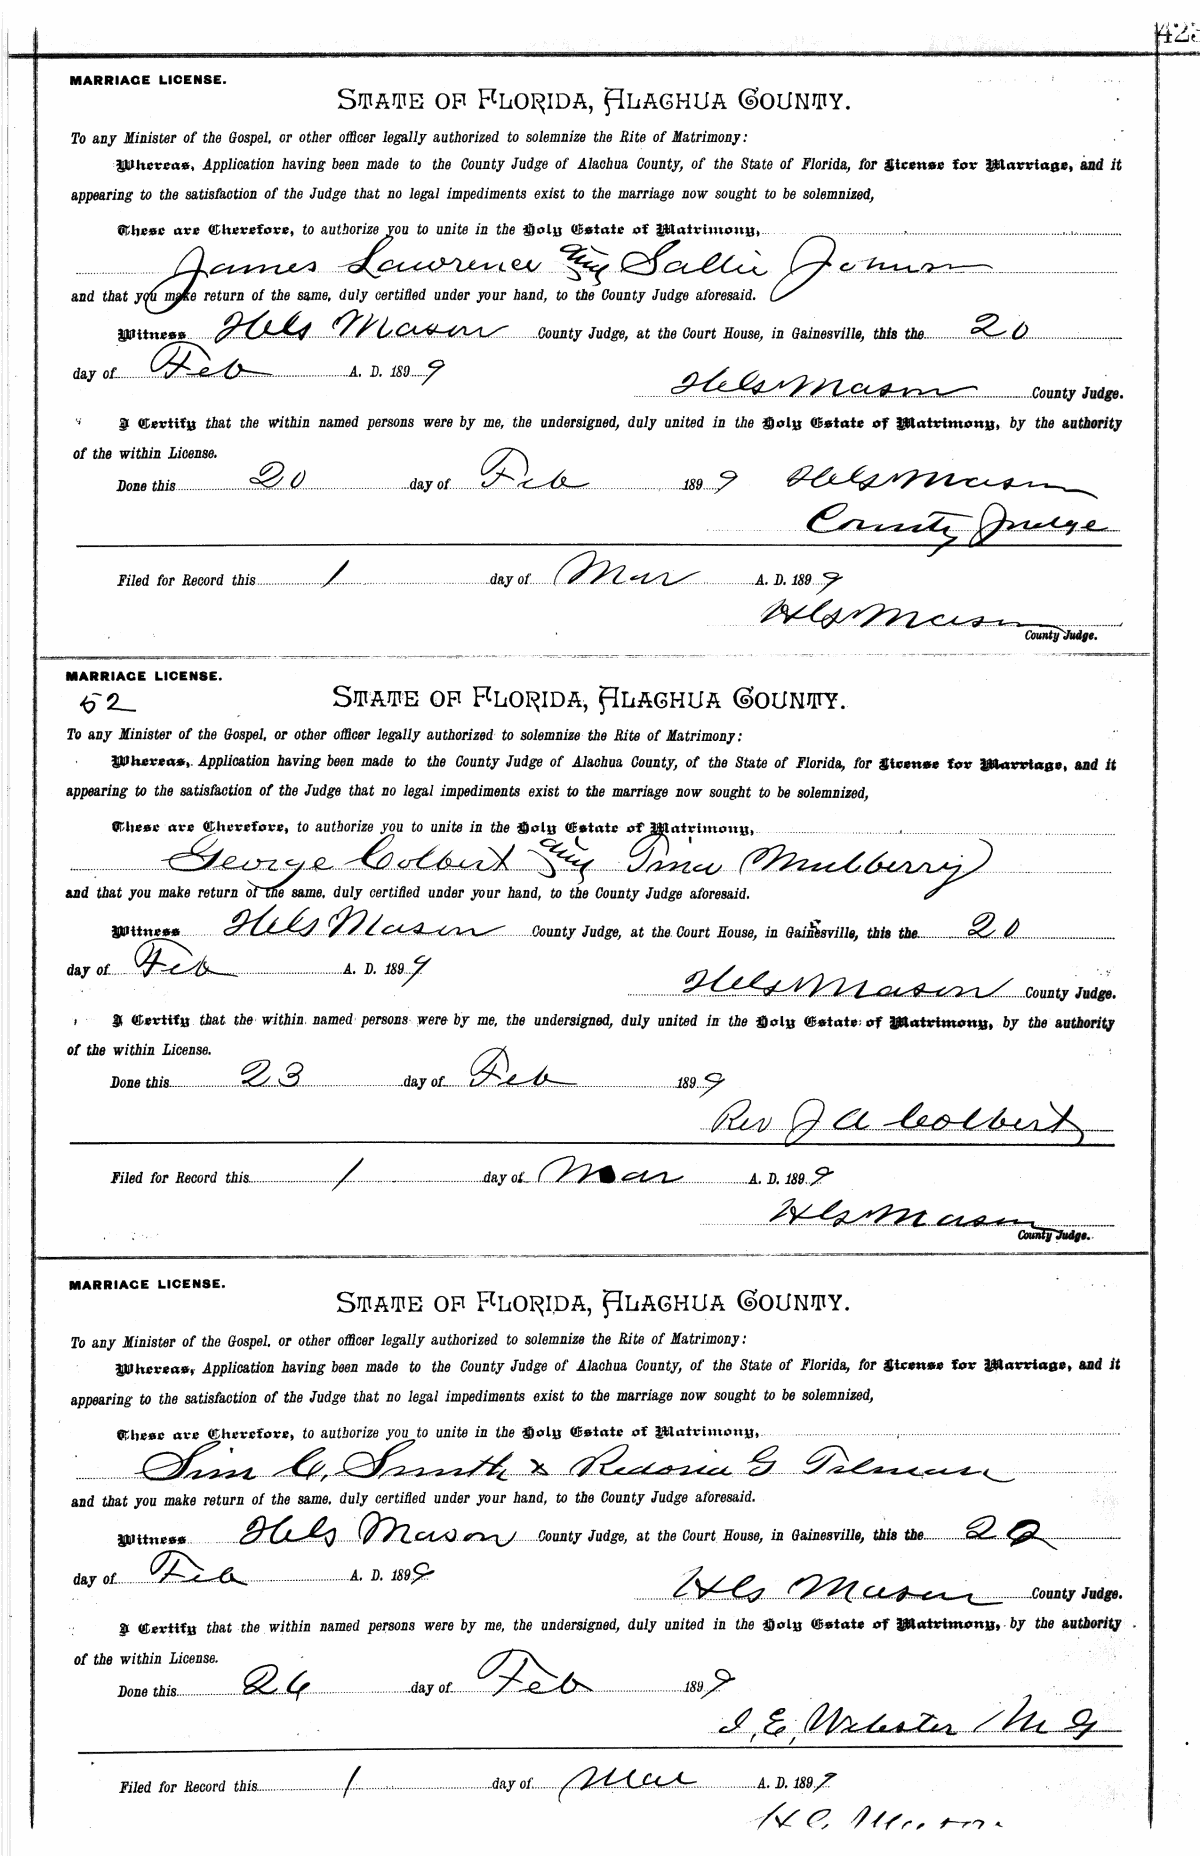 MARRIAGE LICENSE.
STATE OF FLORIDA, ALACHUA COUNTY.
To any Minister of the Gospel, or other officer legally authorized to solemnize the Rite of Matrimony:
Whereas, Application having been made to the County Judge of Alachua County, of the State of Florida, for License for Marriage, and it
appearing to the satisfaction of the Judge that no legal impediments exist to the marriage now sought to be solemnized,
These are Therefore, to authorize you to unite in the Holy Estate of Matrimony,
James Lawrence and Sallie Johnson
and that you make return of the same, duly certified under your hand, to the County Judge aforesaid.
Witness Mason County Judge, at the Court House, in Gainesville, this the 20
day of Feb A. D. 1899
Mason County Judge.
I Certify that the within named persons were by me, the undersigned, duly united in the Holy Estate of Matrimony, by the authority
of the within License.
Done this 20 day of Feb 1899 Mason
County Judge
Filed for Record this 1 day of Mar A. D. 1899
Mason
County Judge.
MARRIAGE LICENSE.
52 STATE OF FLORIDA, ALACHUA COUNTY.
To any Minister of the Gospel, or other officer legally authorized to solemnize the Rite of Matrimony:
Whereas, Application having been made to the County Judge of Alachua County, of the State of Florida, for License for Marriage, and it
appearing to the satisfaction of the Judge that no legal impediments exist to the marriage now sought to be solemnized,
These are Therefore, to authorize you to unite in the Holy Estate of Matrimony,
George Colbert and Tina Mulberry
and that you make return of the same, duly certified under your hand, to the County Judge aforesaid.
Witness Mason County Judge, at the Court House, in Gainesville, this the 20
day of Feb A. D. 1899
Mason County Judge.
I Certify that the within named persons were by me, the undersigned, duly united in the Holy Estate of Matrimony, by the authority
of the within License.
Done this 23 day of Feb 1899
Rev J A Colbert
Filed for Record this 1 day of Mar A. D. 1899
Mason
County Judge.
MARRIAGE LICENSE.
STATE OF FLORIDA, ALACHUA COUNTY.
To any Minister of the Gospel, or other officer legally authorized to solemnize the Rite of Matrimony:
Whereas, Application having been made to the County Judge of Alachua County, of the State of Florida, for License for Marriage, and it
appearing to the satisfaction of the Judge that no legal impediments exist to the marriage now sought to be solemnized,
These are Therefore, to authorize you to unite in the Holy Estate of Matrimony,
Sim C. Smith & G Tilman
and that you make return of the same, duly certified under your hand, to the County Judge aforesaid.
Witness Mason County Judge, at the Court House, in Gainesville, this the 22
day of Feb A. D. 1899
Mason County Judge.
I Certify that the within named persons were by me, the undersigned, duly united in the Holy Estate of Matrimony, by the authority
of the within License.
Done this 26 day of Feb 1899
I. E. Webster M G
Filed for Record this 1 day of Mar A. D. 1899
Mason